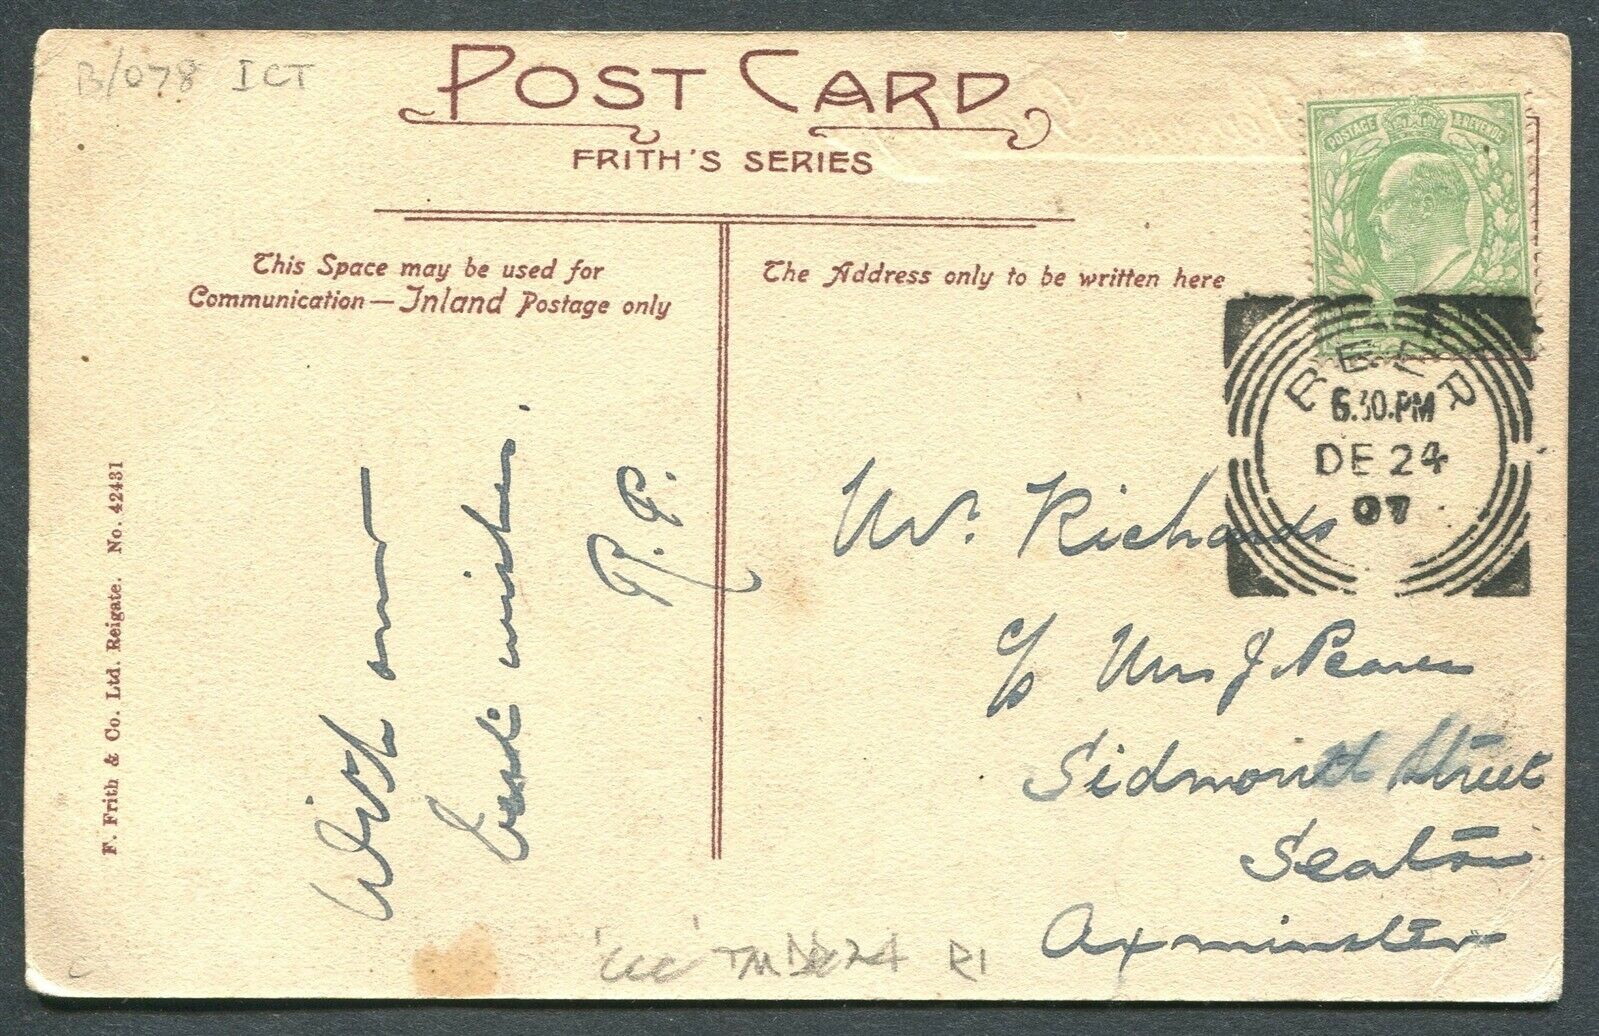 B/078 ICT
POST CARD
FRITH'S SERIES
POSTAGE & REVENUE
This Space may be used for
Communication — Inland Postage only
The Address only to be written here
BEER
6.30.PM
DE 24
07
With our
best wishes.
R.P.
Mr. Richards
c/o Mrs J. Pearce
Sidmouth Street
Seaton
Axminster
F. Frith & Co. Ltd. Reigate. No. 42431
24 R1